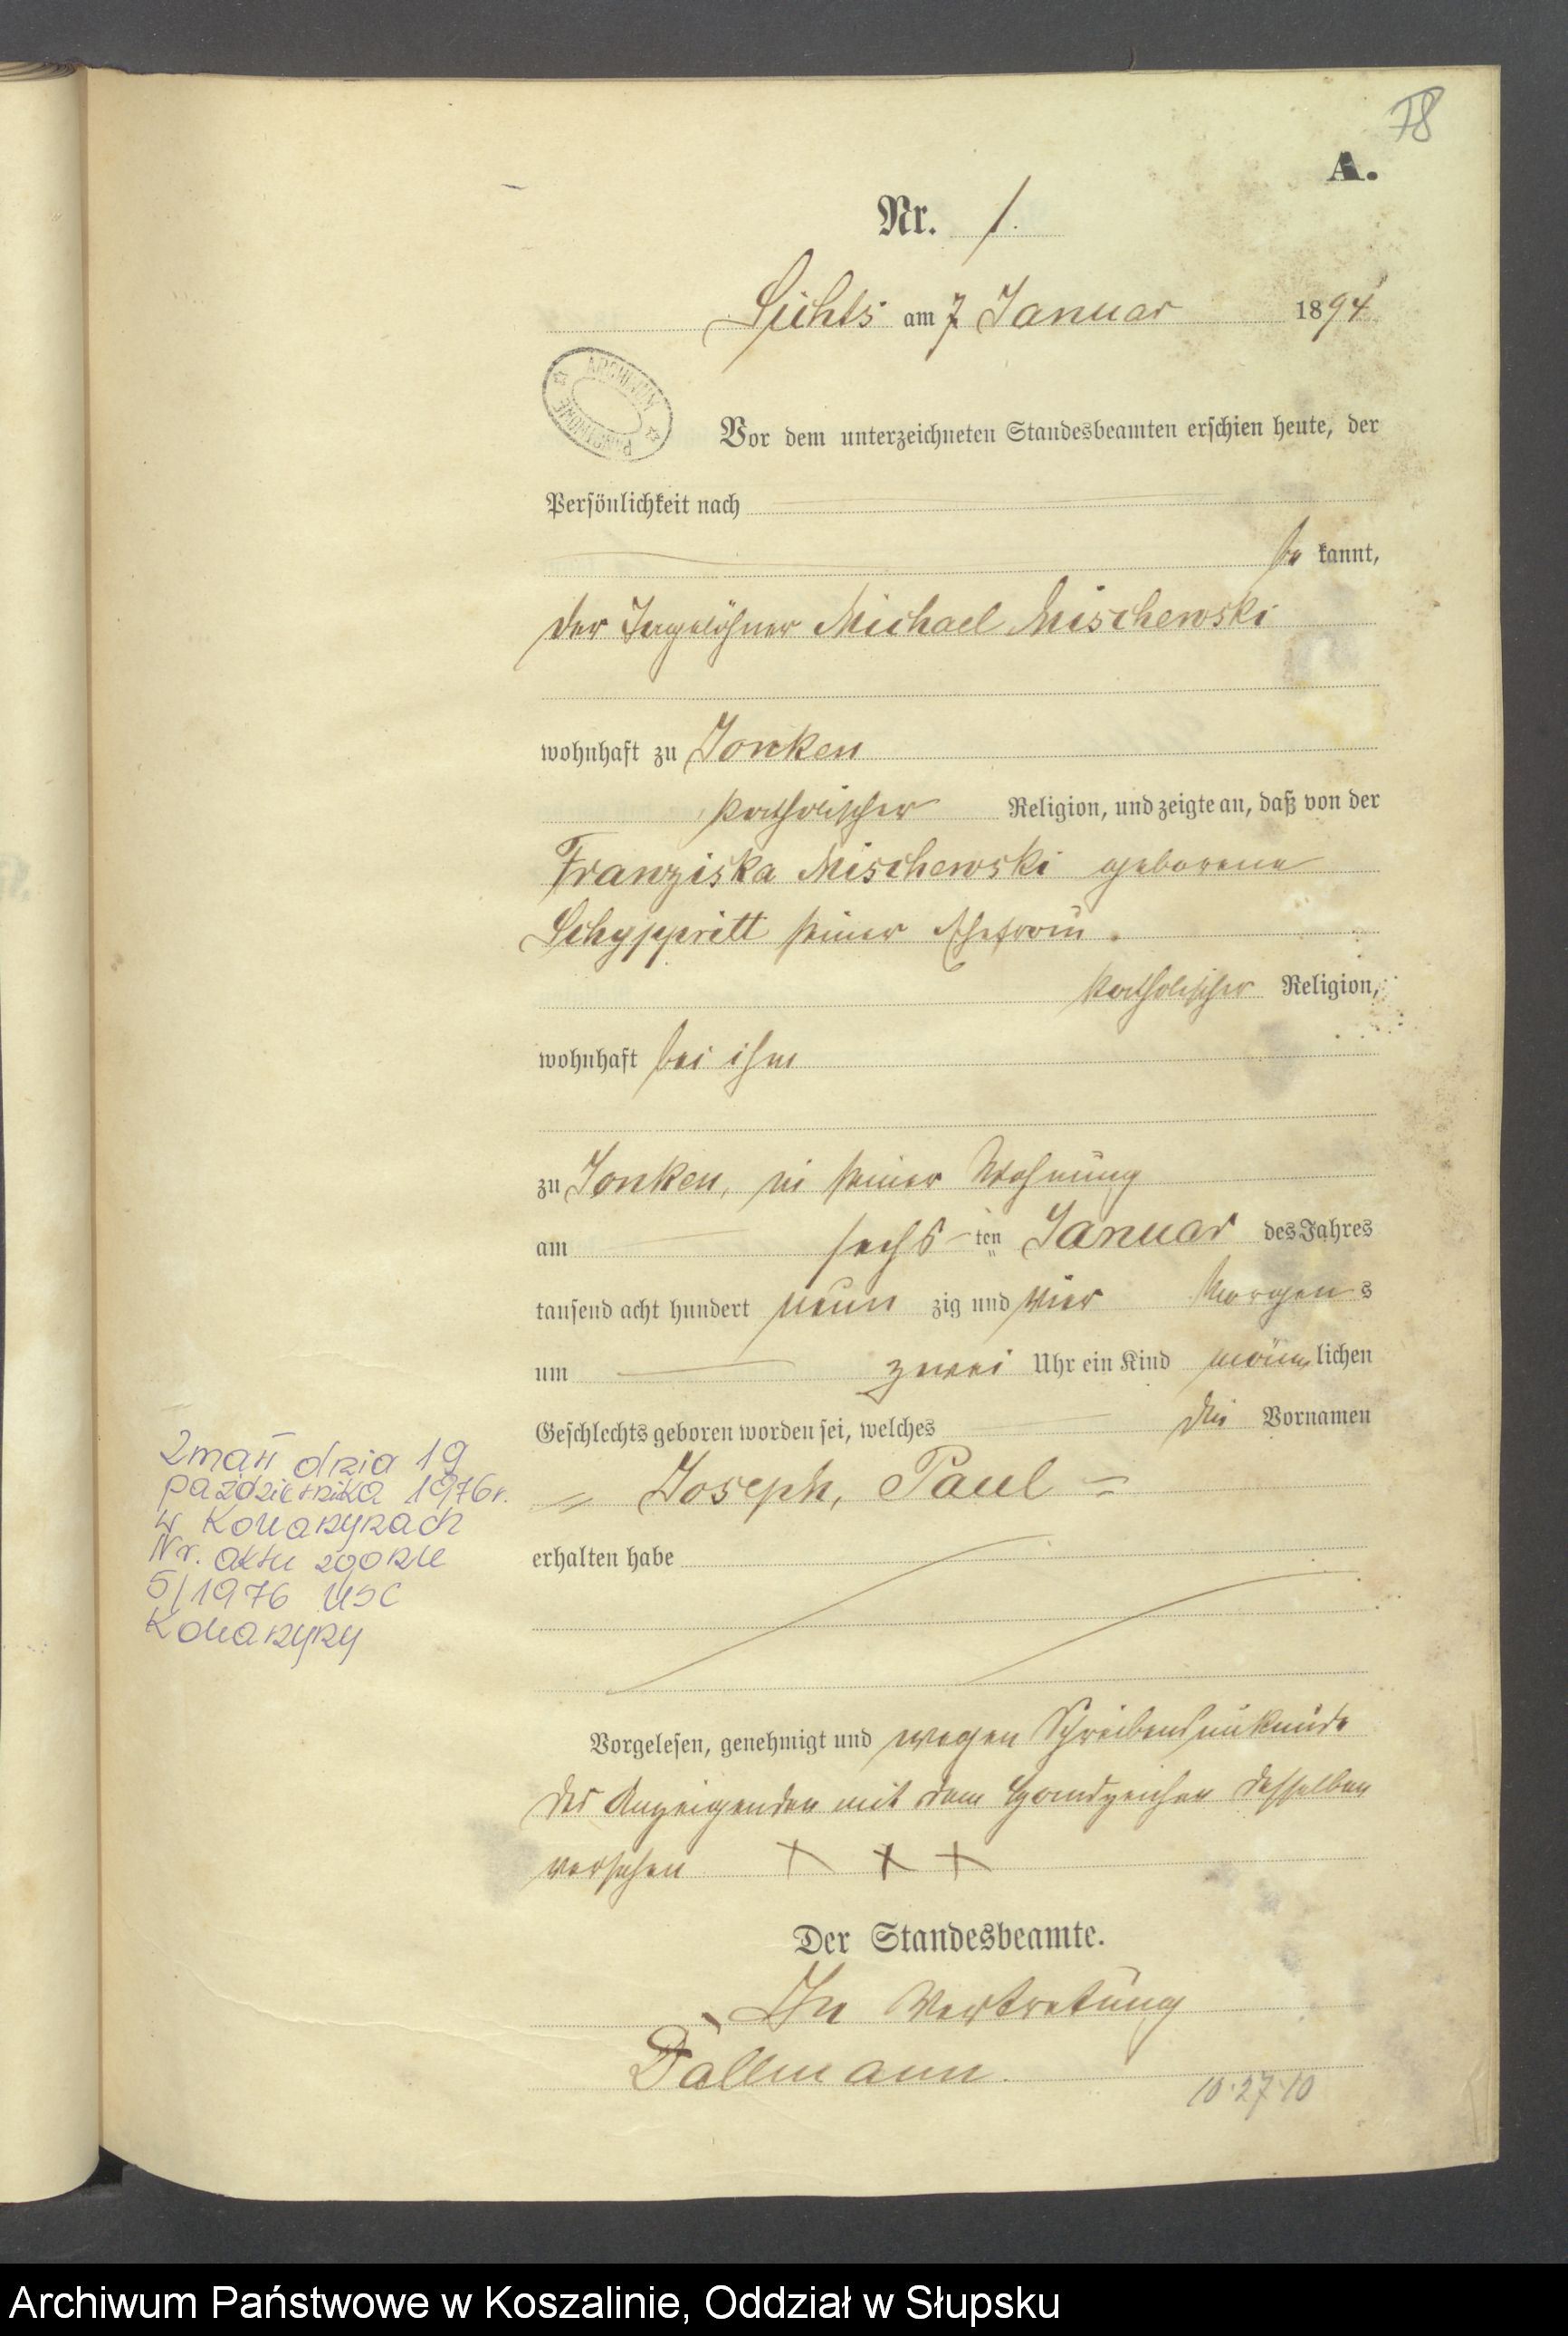 78
A.
Nr. 1.
Sichts am 7 Januar 1894
ARCHIWUM PAŃSTWOWE
Vor dem unterzeichneten Standesbeamten erschien heute, der
Persönlichkeit nach
be kannt,
der Tagelöhner Michael Mischewski
wohnhaft zu Jonken
katholischer Religion, und zeigte an, daß von der
Franziska Mischewski geborene
seiner Ehefrau.
katholischer Religion,
wohnhaft bei ihm
zu Jonken, in seiner Wohnung
am sechs ten Januar des Jahres
tausend acht hundert neun zig und vier Morgen s
um zwei Uhr ein Kind männlichen
Geschlechts geboren worden sei, welches die Vornamen
Joseph, Paul
erhalten habe
Zmarł dnia 19
października 1976r.
w Konarzynach
Nr. aktu zgonu
5/1976 USC
Konarzyny
Vorgelesen, genehmigt und wegen Schreibensunkunde
des Anzeigenden mit dem Handzeichen desselben
versehen + + +
Der Standesbeamte.
In Vertretung
Dallmann.
10.27.10
Archiwum Państwowe w Koszalinie, Oddział w Słupsku